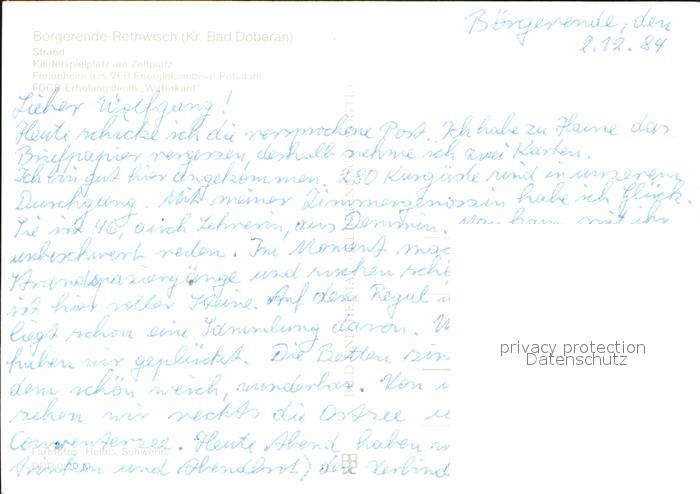 Börgerende, den
2.12.84
Borgerende-Rethwisch (Kr. Bad Doberan)
Strand
Kinderspielplatz am Zeltplatz
Ferienheim des VEB Energiekombinat Potsdam
FDGB-Erholungsheim „Waterkant"
Lieber Wolfgang!
Heute schicke ich die versprochene Post. Ich habe zu Hause das
Briefpapier vergessen, deshalb nehme ich zwei Karten.
Ich bin gut hier angekommen. 280 Kurgäste sind in unserem
Durchgang. Mit meiner Zimmergenossin habe ich Glück.
Sie ist 46, auch Lehrerin, aus Demmin. Man kann mit ihr
unbeschwert reden. Im Moment mac
Strandspaziergänge und suchen schö
ist hier voller Steine. Auf dem Regal u
liegt schon eine Sammlung davon. W
haben wir gepflückt. Die Betten sin
dem schön weich, wunderbar. Von u
sehen wir rechts die Ostsee u
Conventersee. Heute Abend haben w
trinken und Abendbrot) den Verbind
Farbfotos: Helms, Schwerin
privacy protection
Datenschutz